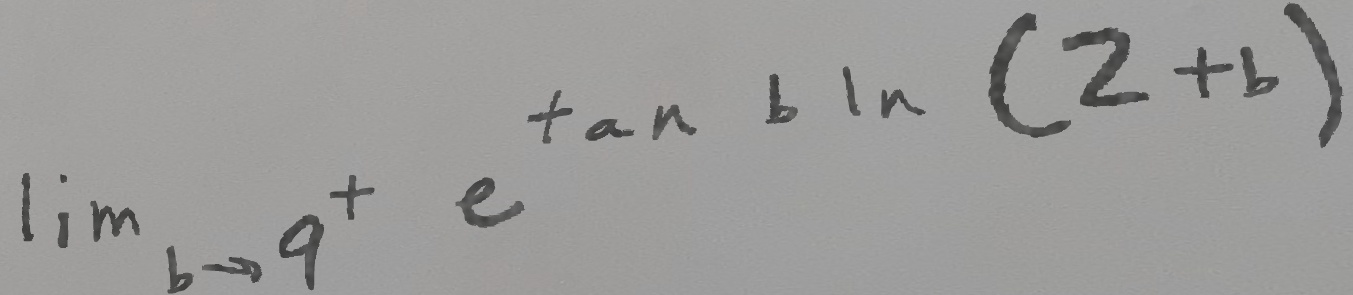 lim b→9⁺ e^{tan b ln (2+b)}